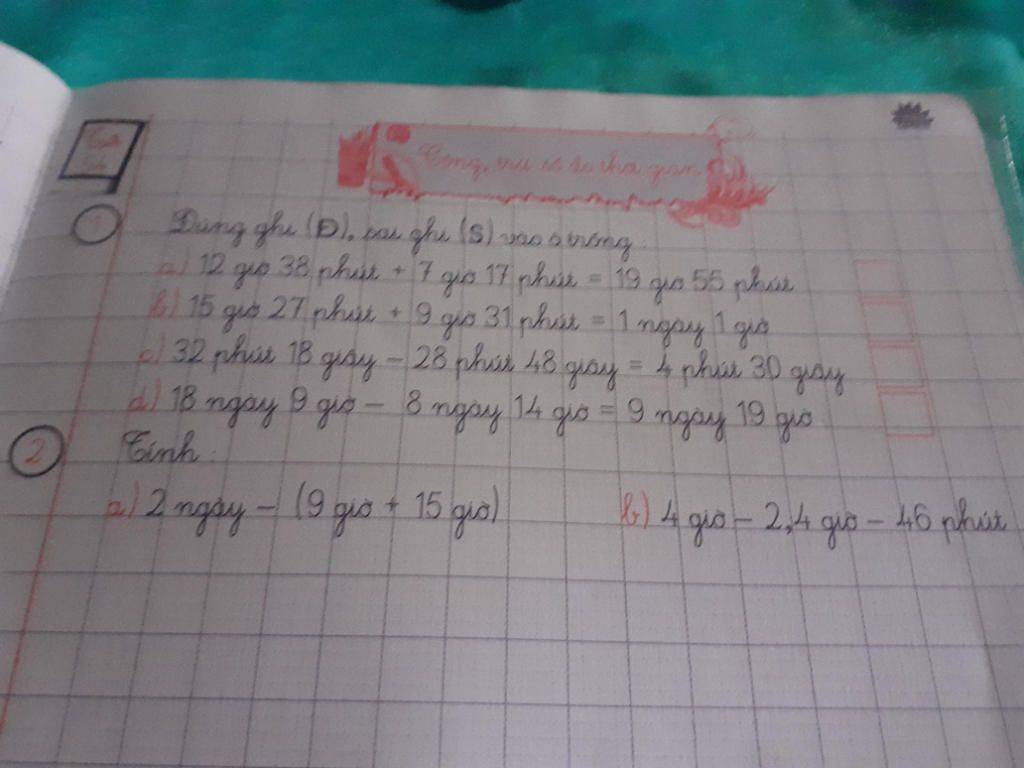 Cộng, trừ số đo thời gian
1 Đúng ghi (Đ), sai ghi (S) vào ô trống
a) 12 giờ 38 phút + 7 giờ 17 phút = 19 giờ 55 phút
b) 15 giờ 27 phút + 9 giờ 31 phút = 1 ngày 1 giờ
c) 32 phút 18 giây - 28 phút 48 giây = 4 phút 30 giây
d) 18 ngày 9 giờ - 8 ngày 14 giờ = 9 ngày 19 giờ
2 Tính:
a) 2 ngày - (9 giờ + 15 giờ) b) 4 giờ - 2,4 giờ - 46 phút